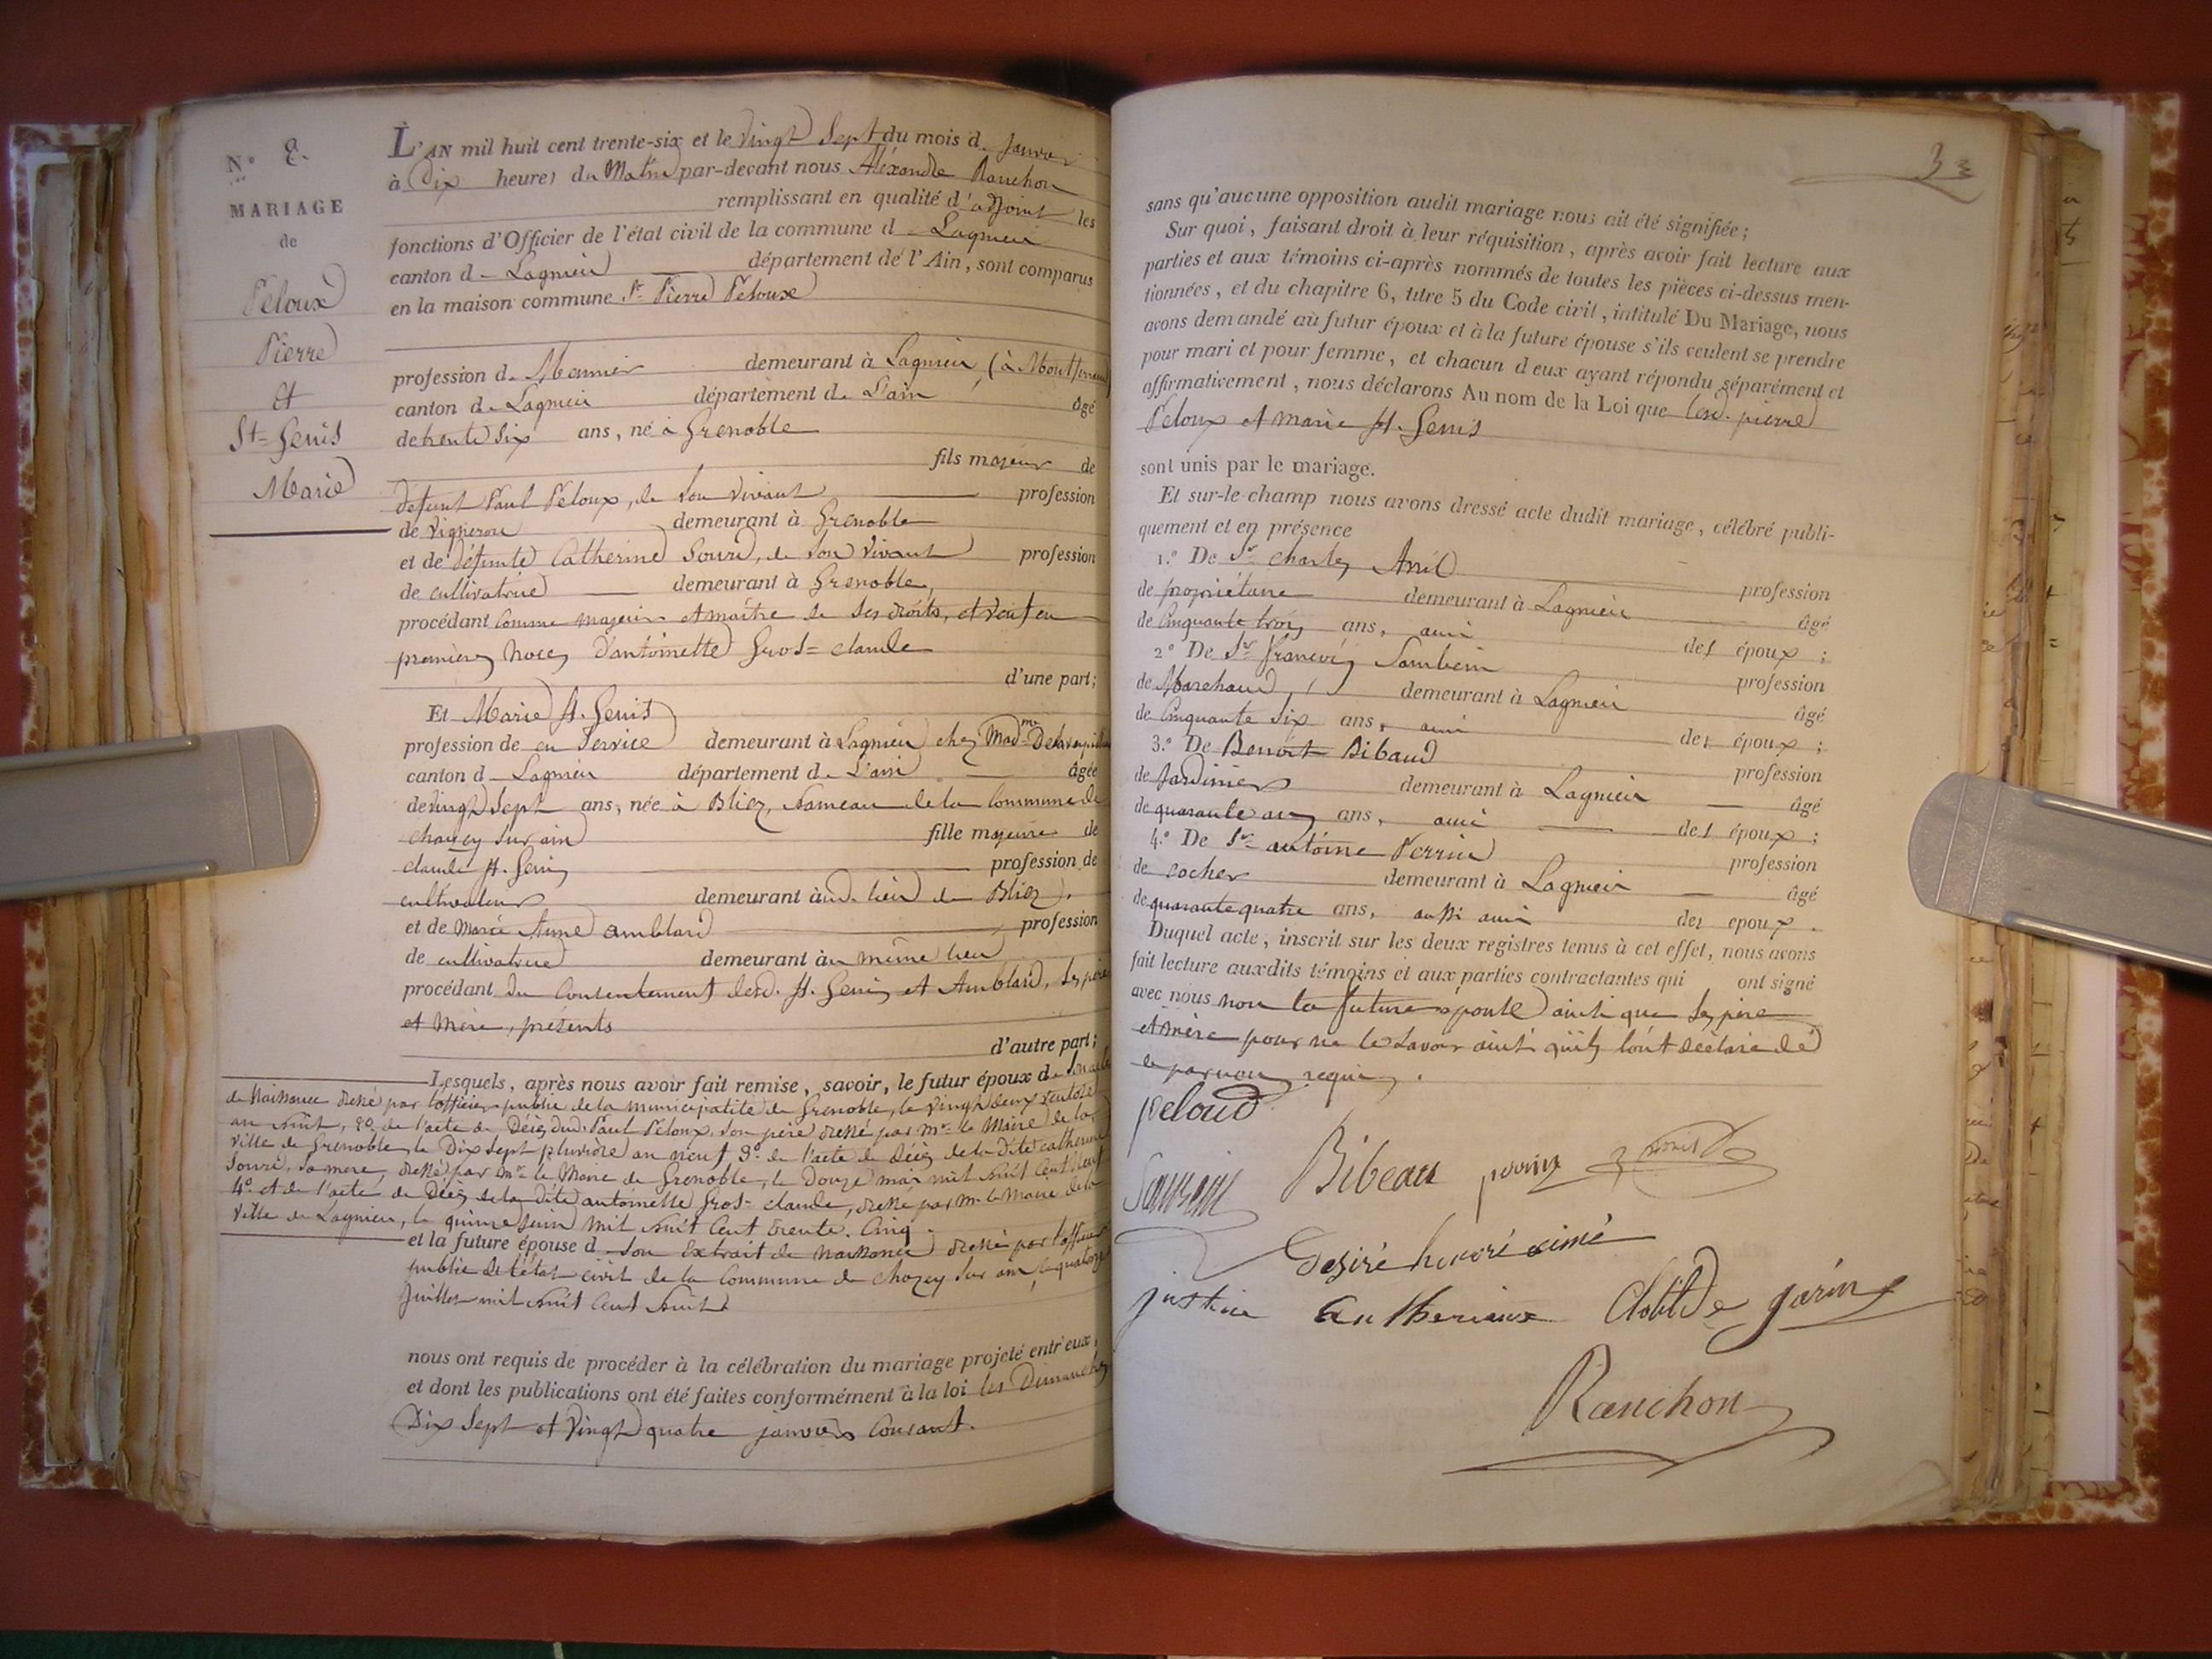 N° 8.
MARIAGE
de
Peloux
Pierre
et
St=Genis
Marie
L'AN mil huit cent trente-six et le vingt Sept du mois d. janvier
à Dix heures du Matin par-devant nous Aléxandre Ranchon
remplissant en qualité d'adjoint les
fonctions d'Officier de l'état civil de la commune d - Lagnieu
canton d - Lagnieu département de l'Ain, sont comparus
en la maison commune Sr Pierre Peloux
profession d. Meunier demeurant à Lagnieu (à Montferrand)
canton d. Lagnieu département d. L'ain âgé
de trente six ans, né à Grenoble
fils majeur de
défunt Paul Peloux, de son vivant profession
de vigneron demeurant à Grenoble
et de défunte Catherine Souré, de son vivant profession
de cultivatrice demeurant à Grenoble,
procédant comme majeur et maître de ses droits, et veuf en
premières noces d'antoinette Gros=claude
d'une part;
Et Marie St. Genis
profession de en Service demeurant à Lagnieu chez Mad.me
canton d - Lagnieu département d. L'ain âgée
de vingt Sept ans, née à Bliez, hameau de la Commune de
chazey sur ain fille majeure de
claude St. Genis profession de
cultivateur demeurant aud. lieu de Bliez,
et de Marie Anne amblard profession
de cultivatrice demeurant au même lieu
procédant du Consentement desd. St. Genis et Amblard, ses père
et Mère, présents
d'autre part;
Lesquels, après nous avoir fait remise, savoir, le futur époux d. Son acte
de Naissance dressé par l'officier public de la municipalité de Grenoble, le vingt deux ventose
an huit, 2° de l'acte de Décès dud. Paul Peloux, son père dressé par Mr. le Maire de la
ville de Grenoble, le Dix sept pluviôse an neuf 3° de l'acte de Décès de la Dite catherine
Souré, sa mère, dressé par Mr. le Maire de Grenoble, le Douze mai mil huit Cent Neuf
4° et de l'acte de Décès de la dite antoinette Gros=claude, dressé par Mr. le Maire de la
ville de Lagnieu, le quinze juin mil huit Cent trente. Cinq
et la future épouse d - Son Extrait de Naissance dressé par l'officier
public de l'état civil de la Commune de chazey sur ain, le quatorze
juillet mil huit Cent huit
nous ont requis de procéder à la célébration du mariage projeté entr'eux,
et dont les publications ont été faites conformément à la loi les Dimanches
Dix Sept et Vingt quatre janvier Courant.
3
sans qu'aucune opposition audit mariage nous ait été signifiée;
Sur quoi, faisant droit à leur réquisition, après avoir fait lecture aux
parties et aux témoins ci-après nommés de toutes les pièces ci-dessus men-
tionnées, et du chapitre 6, titre 5 du Code civil, intitulé Du Mariage, nous
avons demandé au futur époux et à la future épouse s'ils veulent se prendre
pour mari et pour femme, et chacun d'eux ayant répondu séparément et
affirmativement, nous déclarons Au nom de la Loi que lesd. pierre
Peloux et marie St. Genis
sont unis par le mariage.
Et sur-le-champ nous avons dressé acte dudit mariage, célébré publi-
quement et en présence
1.° De Sr charles profession
de propriétaire demeurant à Lagnieu âgé
de Cinquante trois ans, ami des époux;
2° De Sr françois profession
de Marchand, demeurant à Lagnieu âgé
de Cinquante Six ans, ami des époux;
3.° De Benoit Bibaud profession
de Jardinier demeurant à Lagnieu âgé
de quarante ans, ami des époux;
4.° De Sr antoine Perrin profession
de cocher demeurant à Lagnieu âgé
de quarante quatre ans, aussi ami des époux.
Duquel acte, inscrit sur les deux registres tenus à cet effet, nous avons
fait lecture auxdits témoins et aux parties contractantes qui ont signé
avec nous non la future épouse ainsi que Ses père
et mère pour ne le Savoir ainsi qu'ils l'ont déclaré de
ce par nous requis.
peloud
Bibeau perrin
Desiré honoré aimé
justine Clotilde garin
Ranchon